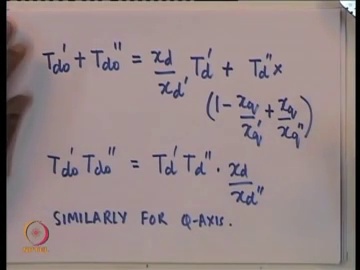 Tdo' + Tdo" = xd/xd' Td' + Td" x
(1 - xq/xq' + xq/xq")
Tdo' Tdo" = Td' Td" . xd/xd"
SIMILARLY FOR Q-AXIS.
NPTEL